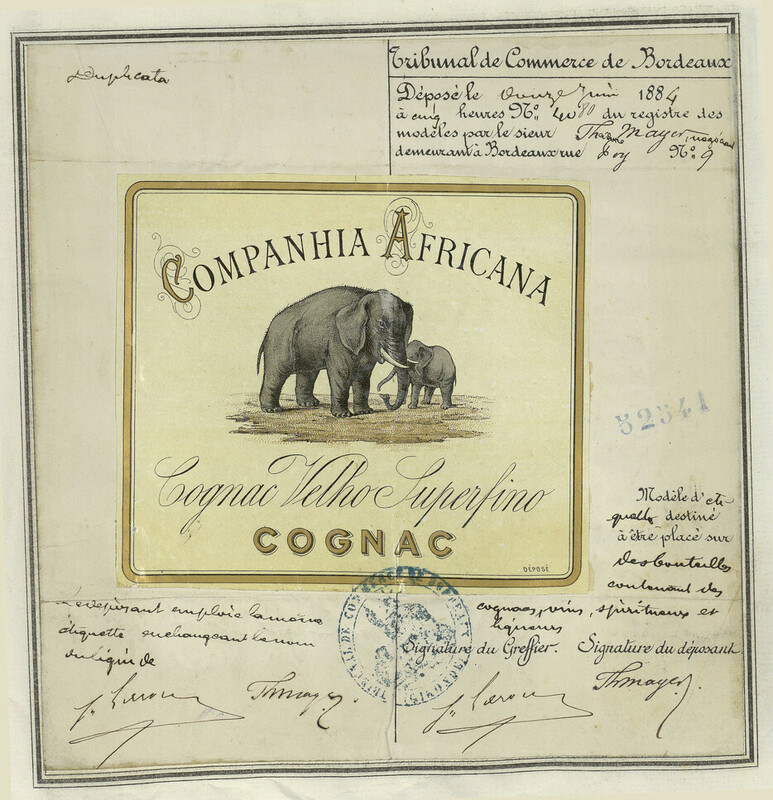 Duplicata
Tribunal de Commerce de Bordeaux
Déposé le douze Juin 1884
à cinq heures No. 4080 du registre des
modèles par le sieur Mayer, négociant
demeurant à Bordeaux rue Foy No. 9
COMPANHIA AFRICANA
Cognac Velho Superfino
COGNAC
DÉPOSÉ
52541
Modèle d'éti-
quette destiné
à être placé sur
des bouteilles
contenant des
cognacs, vins, spiritueux et
liqueurs
Le déposant emploie la même
étiquette en changeant le nom
du liquide
Signature du Greffier. Signature du déposant
Thmayer
Thmayer
TRIBUNAL DE COMMERCE DE BORDEAUX
(GIRONDE)